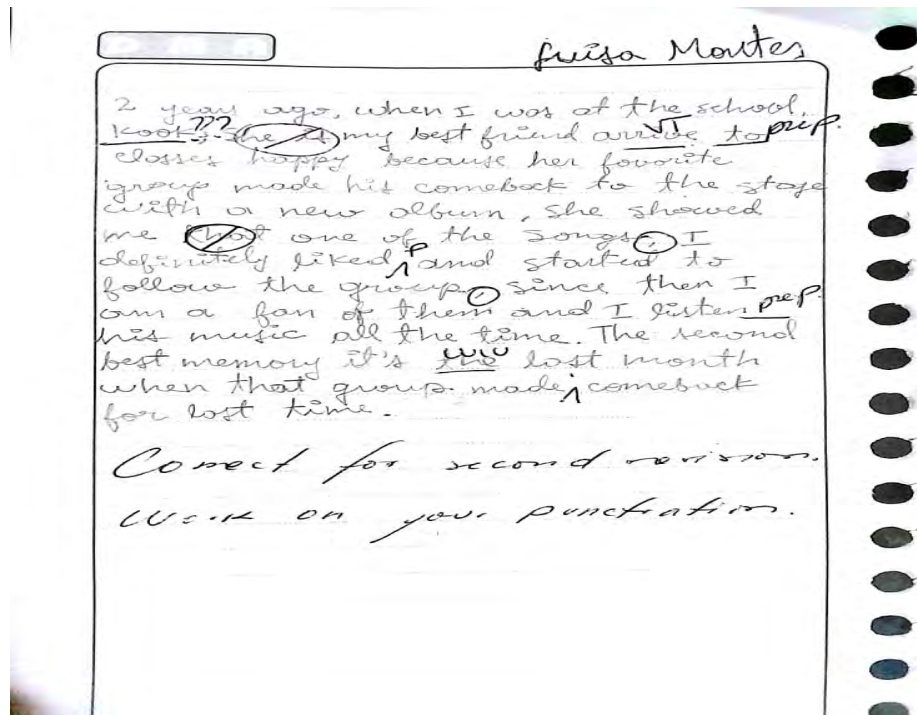 Luisa Montes
2 years ago, when I was at the school,
Kook, ??? she is my best friend arrive VT to prep.
classes happy because her favorite
group made his comeback to the stage
with a new album, she showed
me that one of the songs, I
definitely liked P and started to
follow the group, since then I
am a fan of them and I listen prep.
his music all the time. The second
best memory it's the WW last month
when that group made comeback
for last time.
Correct for second revision.
Work on your punctuation.